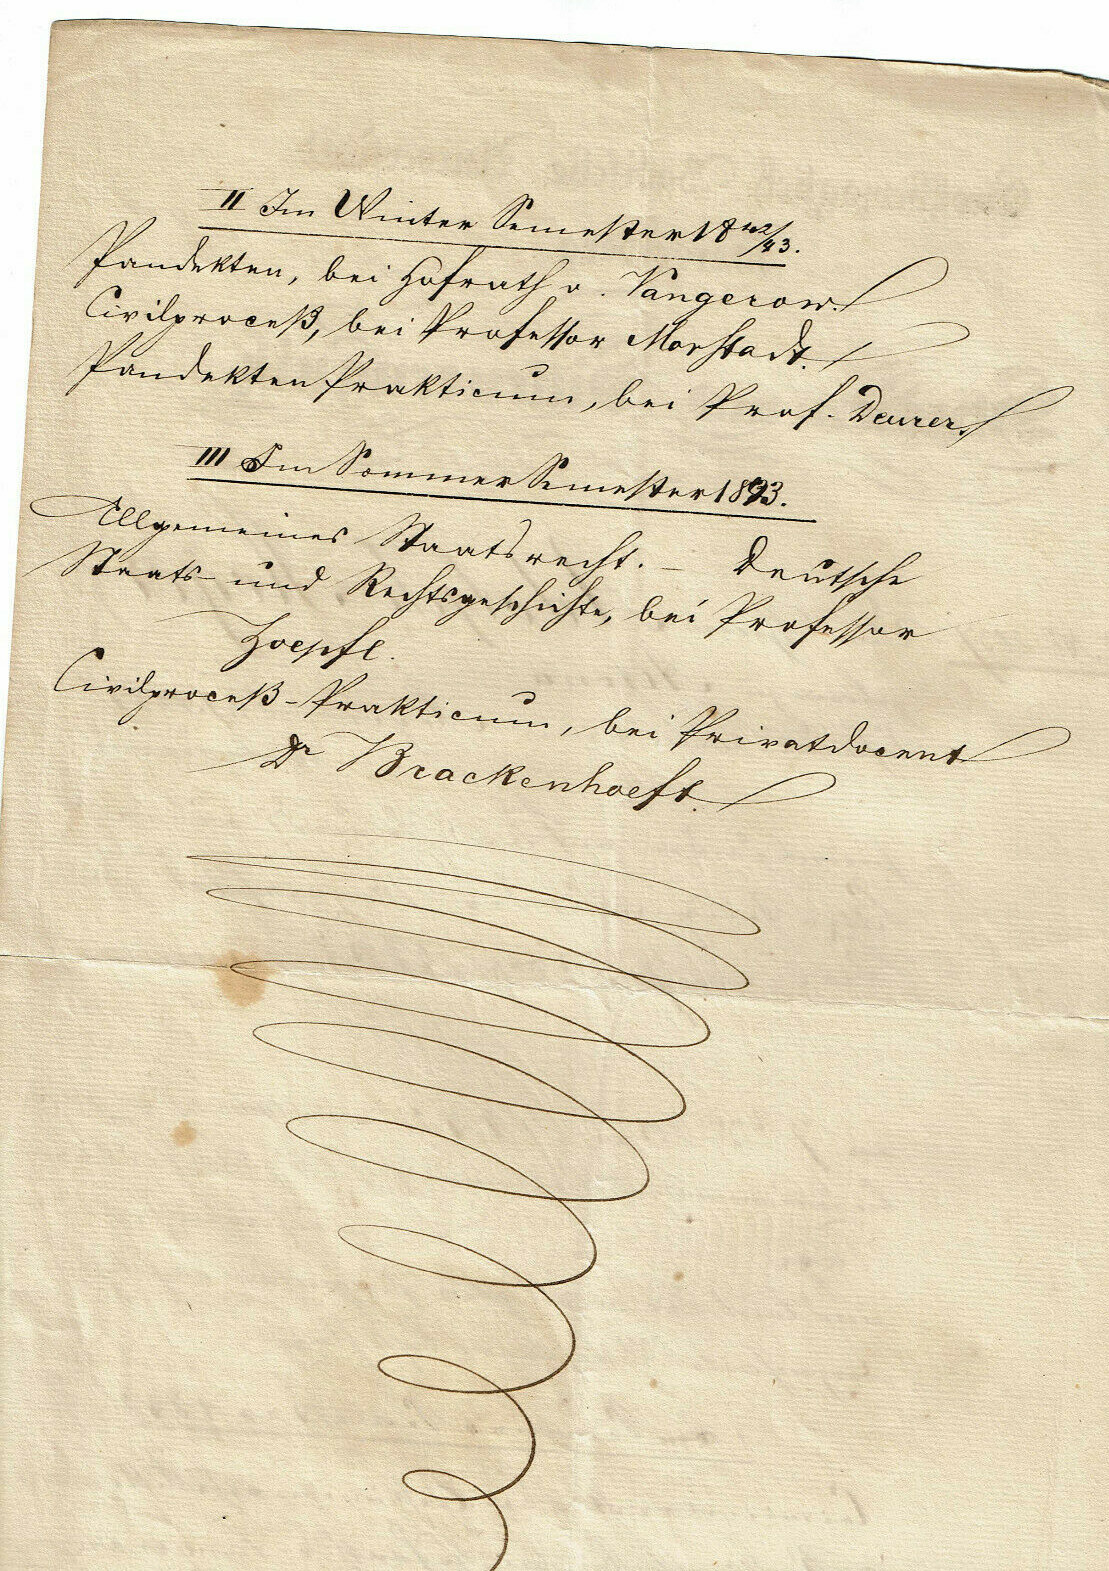 II Im Winter Semester 18 42/43.
Pandekten, bei Hofrath v. Vangerow.
Civilproceß, bei Professor Morstadt.
Pandekten Prakticum, bei Prof. Deurer.
III Im Sommer Semester 1843.
Allgemeines Staatsrecht. – Deutsche
Staats- und Rechtsgeschichte, bei Professor
Zoepfl.
Civilproceß-Prakticum, bei Privatdocent
Dr Brackenhoeft.